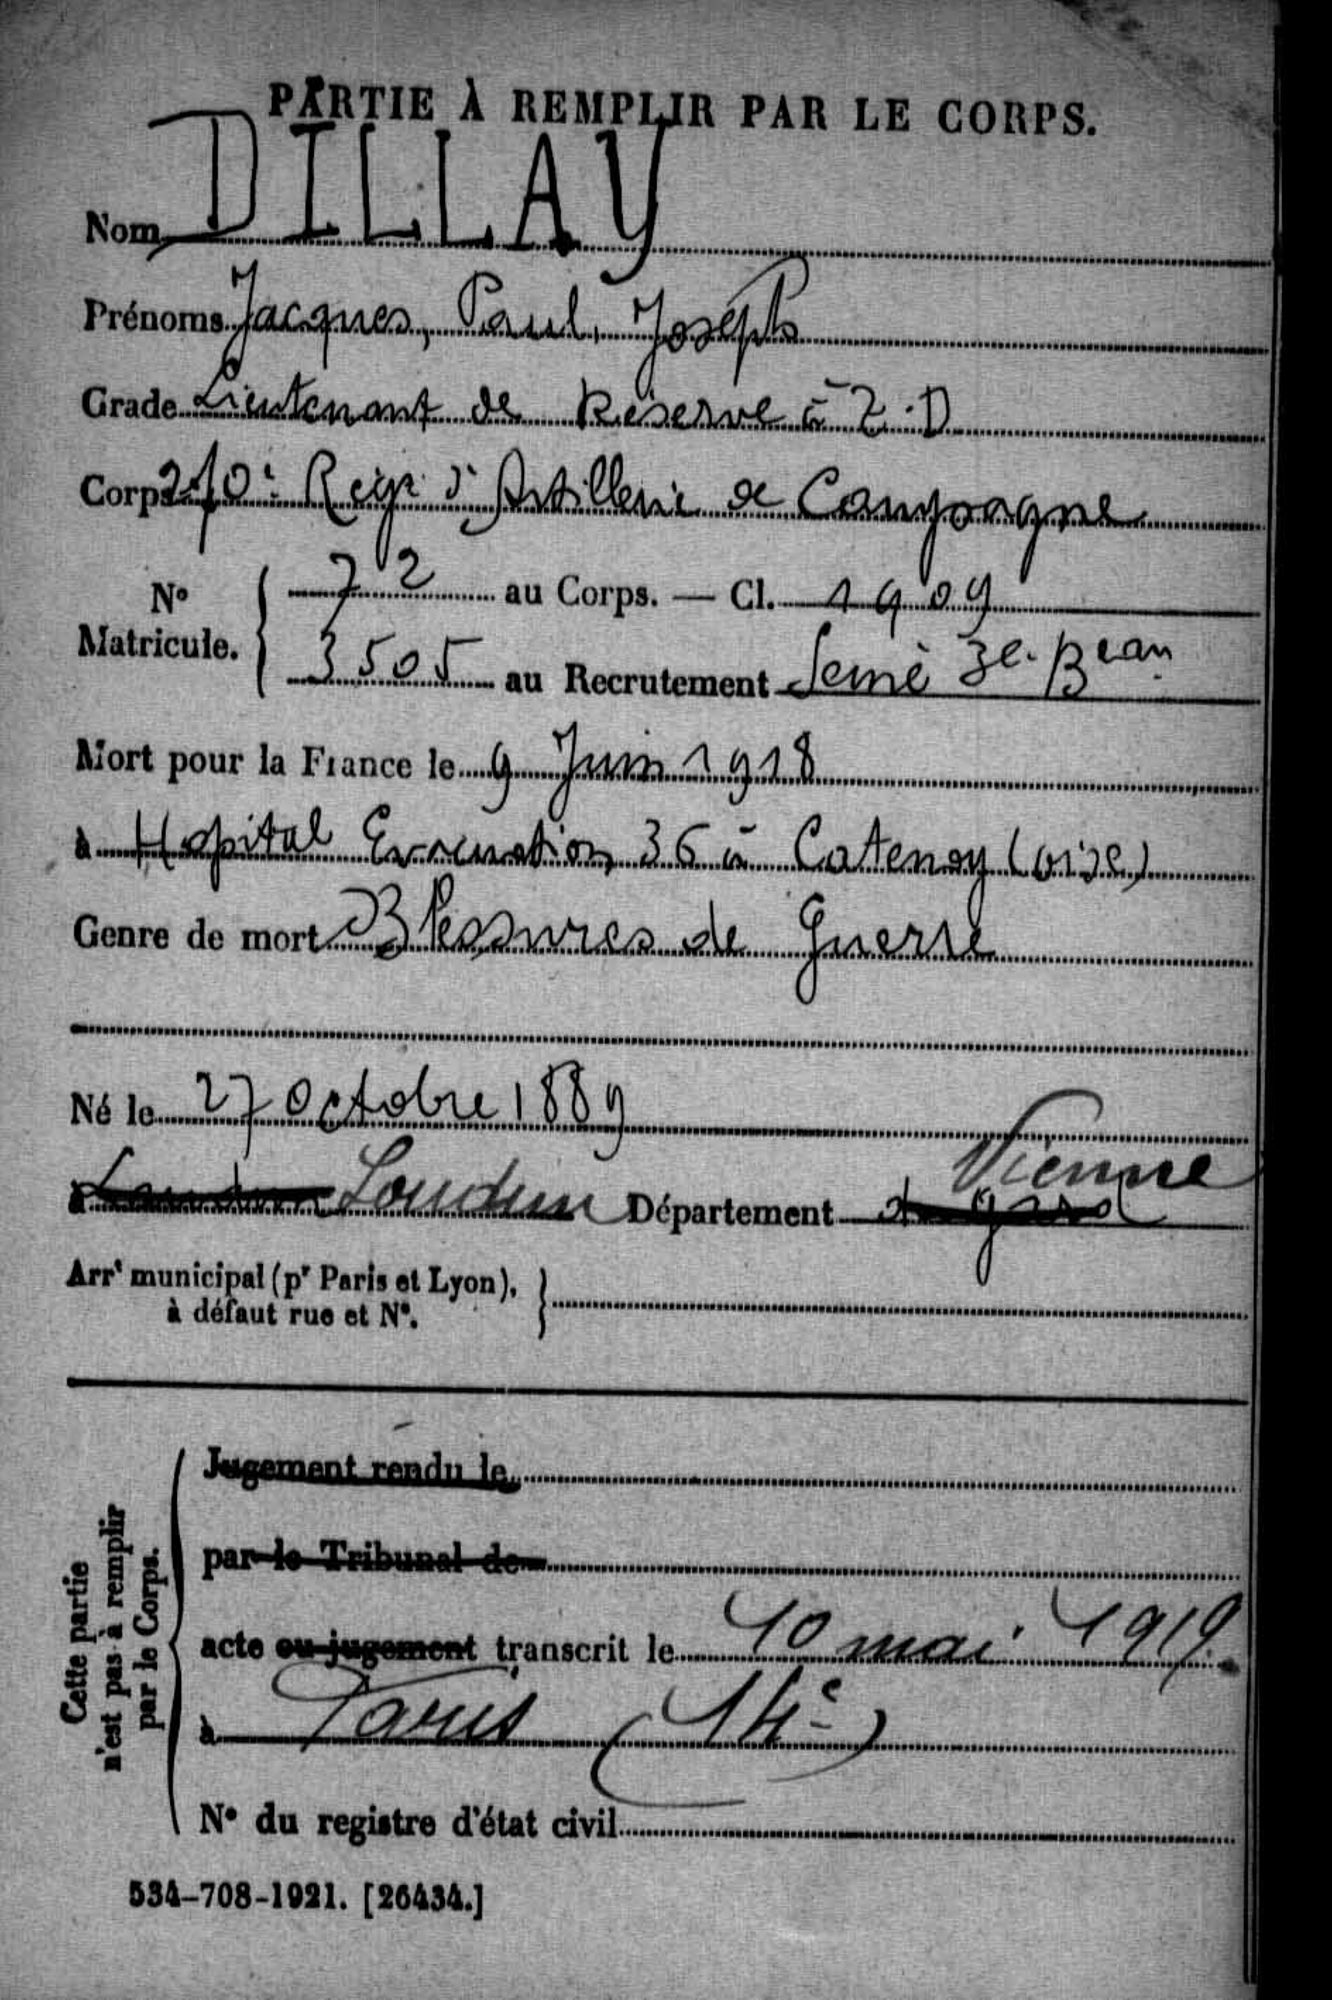 PARTIE À REMPLIR PAR LE CORPS.
Nom DILLAY
Prénoms Jacques, Paul, Joseph
Grade Lieutenant de Réserve à T.D
Corps 210e Regt d'Artillerie de Campagne
No Matricule. 72 au Corps. — Cl. 1909
3505 au Recrutement Seine 3e Beau
Mort pour la France le 9 Juin 1918
à Hopital Evacuation 36 à Catenoy (Oise)
Genre de mort Blessures de Guerre
Né le 27 Octobre 1889
à Loudun Loudun Département Vienne
Arrt municipal (pr Paris et Lyon),
à défaut rue et No.
Cette partie
n'est pas à remplir
par le Corps.
Jugement rendu le
par le Tribunal de
acte ou jugement transcrit le 10 mai 1919
à Paris (14e)
No du registre d'état civil
534-708-1921. [26434.]